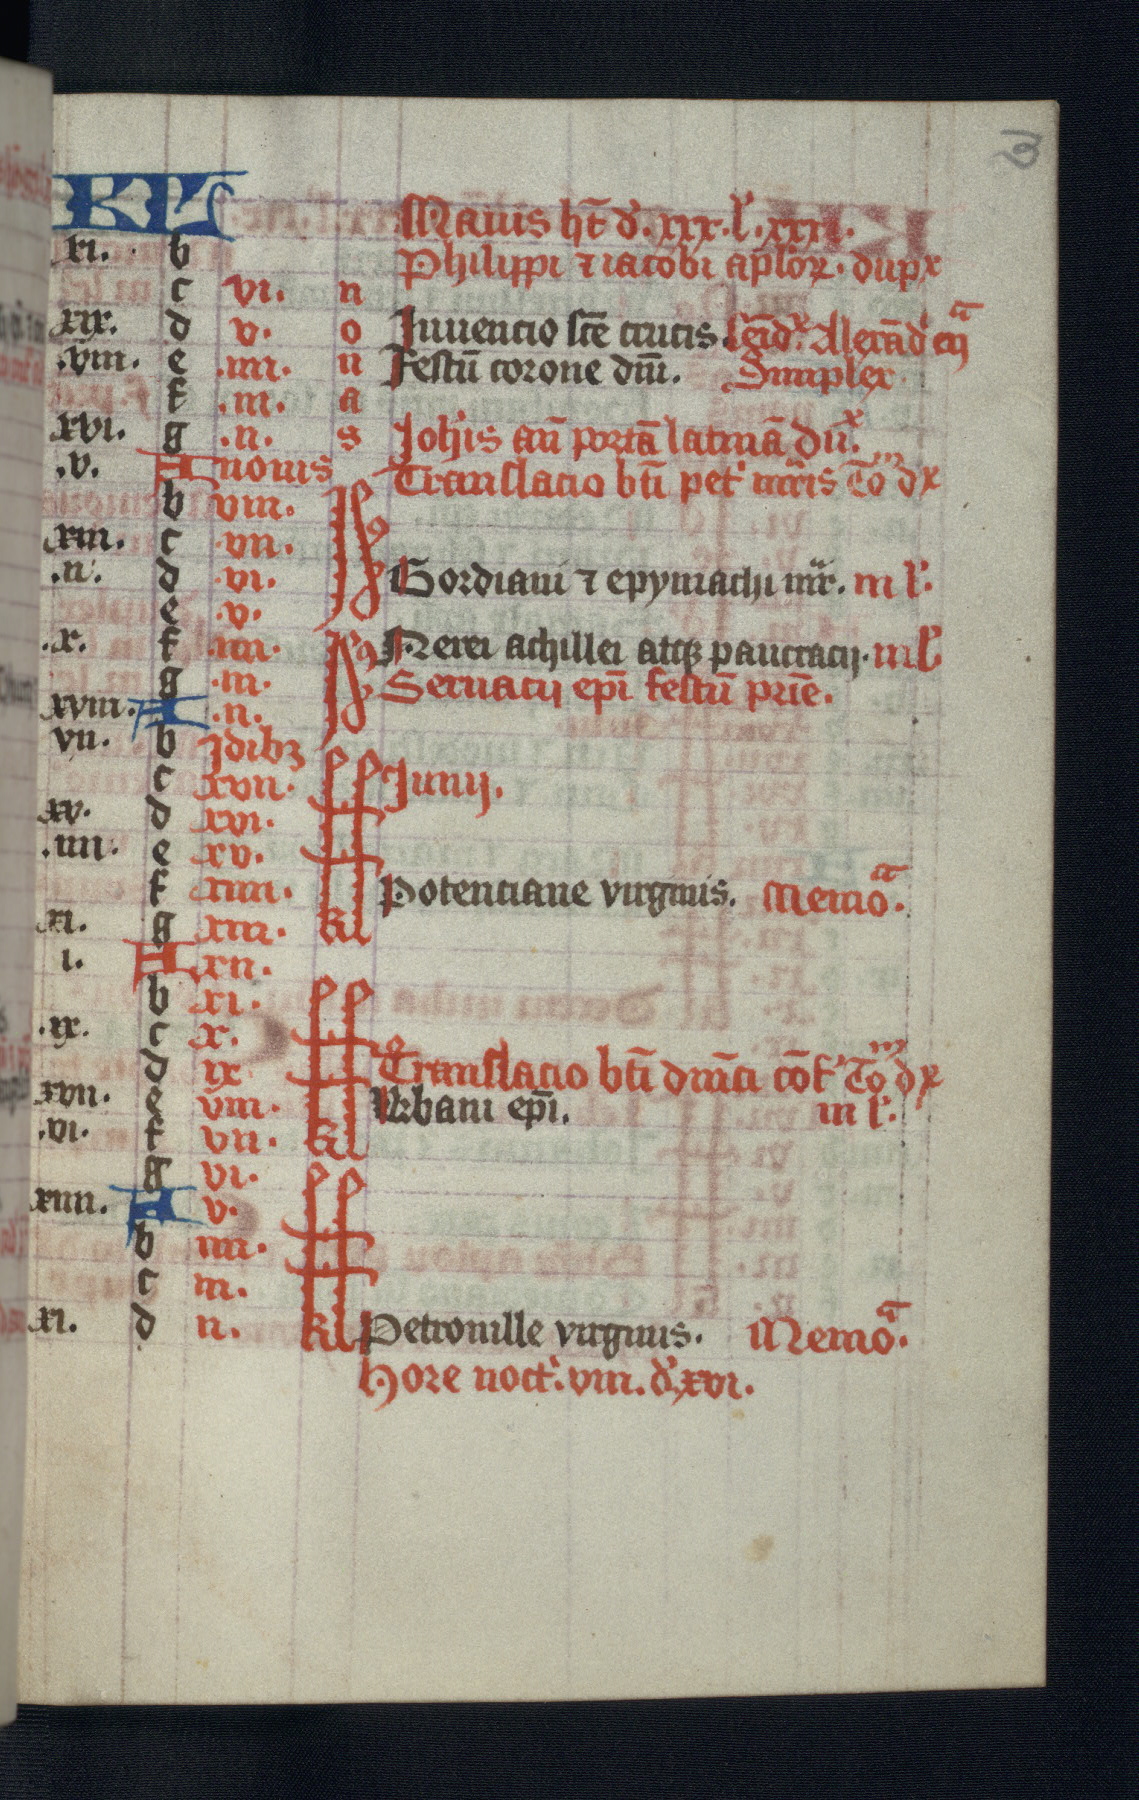 3
KL Maius ht̄ d'. xxx. l'. xxxi.
.xi. b Philippi ⁊ iacobi aplōꝝ. dupx
c vi. n
xix. d v. o Inuencio scē crucis.
.viii. e .iiii. n Festū corone dm̄. Simplex.
f .iii. a
xvi. g .ii. s Joh'is an̄ portā latinā du.x
.v. A nonis Translacio bt̄i pet' mr̄is To dx
b viii.
xiii. c .vii.
.ii. d .vi. Gordiani ⁊ epymachi mr̄. iii l'.
e .v.
.x. f .iiii. Nerei achillei atqꝫ pancracij. iii l'
g .iii. Seruacij epī festū prīe.
xviii. A .ii.
vii. b Jdibꝫ
c xvii. Junij.
xv. d xvi.
.iiii. e xv.
f xiiii. Potenciane virginis. Memoa.
xi. g xiii. kl
i. A xii.
b xi.
.ix. c x.
d ix Translacio bt̄i dm̄ci cōf' To dx
xvii. e viii. Vrbani epī. iii l'.
.vi. f vii. kl
g vi.
xiiii. A v.
b iiii.
c iii.
xi. d ii. kl Petronille virginis. Memoa.
Hore noct'. viii. d'. xvi.